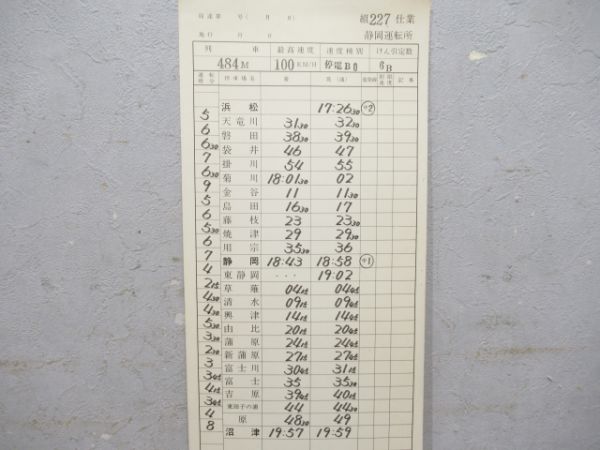 月 日
続227仕業
施行 月 日 静岡運転所
列車 最高速度 速度種別 けん引定数
484M 100KM/H 停電B 6B
運転時分 停車場名 着 発(通) 着発線 制限速度 記事
浜松 17:26 30 ②
5
天竜川 31 30 32 30
6
磐田 38 30 39 30
6 30
袋井 46 47
7
掛川 54 55
6 30
菊川 18:01 30 02
9
金谷 11 11 30
5
島田 16 30 17
6
藤枝 23 23 30
5 30
焼津 29 29 30
6
用宗 35 30 36
7
静岡 18:43 18:58 ①
4
東静岡 ・・・ 19:02
2 15
草薙 04 15 04 45
4 30
清水 09 15 09 45
4 30
興津 14 15 14 45
5 30
由比 20 15 20 45
3 30
蒲原 24 15 24 45
2 30
新蒲原 27 15 27 45
3
富士川 30 45 31 15
3 45
富士 35 35 30
4 15
吉原 39 45 40 15
3 45
東田子の浦 44 44 30
4
原 48 30 49
8
沼津 19:57 19:59